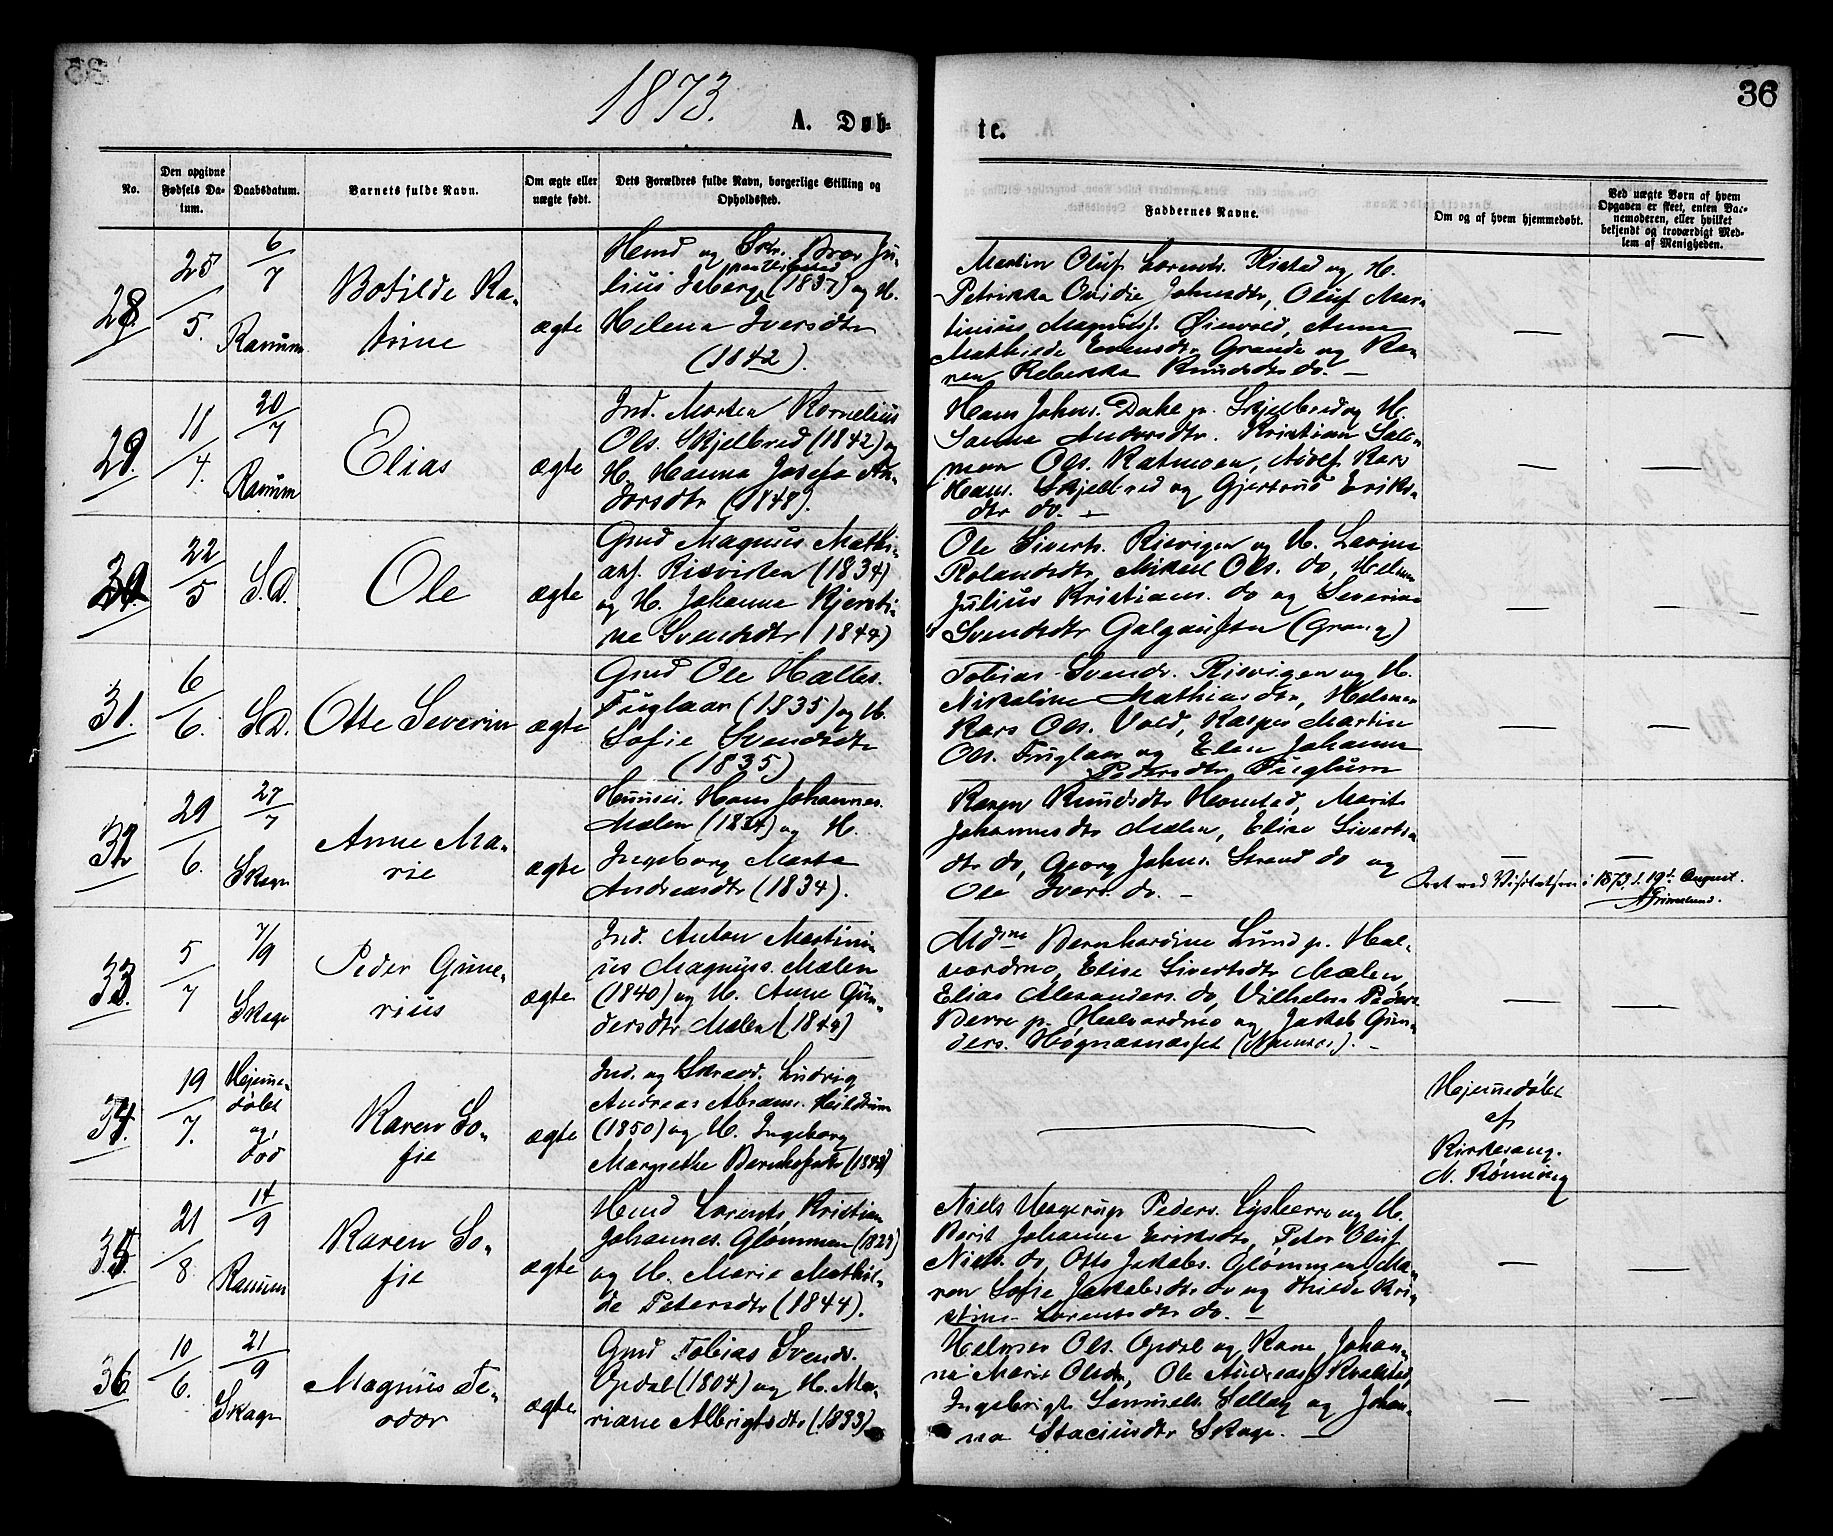 36
1873.
A. Døb-
te.
No.
Den opgivne Fødsels Da-tum.
Daabsdatum.
Barnets fulde Navn.
Om ægte eller uægte født.
Dets Forældres fulde Navn, borgerlige Stilling og Opholdssted.
Faddernes Navne.
Om og af hvem hjemmedøbt.
Ved uægte Børn af hvem Opgaven er skeet, enten Bar-nemoderen, eller hvilket bekjendt og troværdigt Med-lem af Menigheden.
28.
25/5.
6/7
Ranum
Botilde Ka-
trine
ægte
Hmd og Skr.
lius (1837) og H.
Helena Iversdtr
(1842).
Martin Oluf Lorents. Risstad og H.
Petrikka Ovidie Johnsdtr, Oluf Mar-
tinius Magnus. Øievold, Anne
Mathilde Evensdtr Grande og Ka-
ren Rebekka Knudsdtr do. —
—
—
29.
11/4.
20/7
Ranum
Elias
ægte
Ind. Morten Kornelius
Ols. Skjelbred (1842) og
H. Hanna Josefa An-
dersdtr (1848).
Hans Johns. Duke p. Skjelbred og H.
Sanna Andersdtr. Kristian Salo-
mon Ols. Ratmoen, Adolf Kars
Hans. Skjelbred og Gjertrud Eriks-
dtr do. —
—
—
30.
22/5
S.D.
Ole
ægte
Gmd Magnus Mathi-
asf. Risviken (1834)
og H. Johanna Kjersti-
ne Svendsdtr (1844)
Ole Siverts. Risvigen og H. Lavina
Rolandsdtr, Mikal Ols. do, Helmer
Julius Kristians. do og Severine
Svendsdtr Galgauften (Grong)
—
—
31.
6/6.
S.D.
Otte Severin
ægte
Gmd Ole Halles.
Fuglaar (1835) og H.
Sofie Svendsdtr
(1835)
Tobias Svends. Risvigen og H.
Nikoline Mathiasdtr, Helmer
Kars Ols. Vold, Kasper Martin
Ols. Fuglaar og Elen Johanna
Pedersdtr Fuglum
—
—
32
29/6.
27/7
Skage
Anne Ma-
rie
ægte
Huusei. Hans Johannes.
Mælen (1834) og H.
Ingeborg Marta
Andreasdtr (1834).
Karen Knudsdtr Homstad, Marit
Johannesdtr Mælen, Elise Siverts-
dtr do, Georg Johns. Strand do og
Ole Ivers. do. —
—
—
Seet ved Visitatsen i 1873 d. 19de August.
Grimelund.
33.
5/7
7/9
Skage
Peder Gune-
rius
ægte
Ind. Anton Martini-
us Magnuss. Mælen
(1840) og H. Anne Gun-
dersdtr Mælen (1844)
Mdme Bernhardine Lund p. Hal-
vardmo, Elise Sivertsdtr Mælen,
Elias Alexanders. do, Vilhelm Peders.
Berre p. Halvardmo og Jakob Gun-
ders. Høgnæsnæsset (Namsos). —
—
—
34.
19/7.
Hjemme-
døbt
og
død
Karen So-
fie
ægte
Ind. og Skræd. Ludvig
Andreas Abrams. Heildum
(1850) og H. Ingeborg
Margrethe
—
Hjemmedøbt
af
Kirkesang.
N. Rønning
35.
21/8
14/9
Ranum
Karen So-
fie
ægte
Hmd Lorents Kristian
Johannes. Glømmen (1829)
og H. Marie Mathil-
de Petersdtr (1844).
Niels Hagerup Peders. Lysberre og H.
Berit Johanna Eriksdtr, Peter Oluf
Niels. do, Otto Jakobs. Glømmen, Ma-
ren Sofie Jakobsdtr do og Hilda Kri-
stine Lorentsdtr do. —
—
—
36.
10/6.
21/9
Skage
Magnus Te-
odor
ægte
Gmd Tobias Svends.
Opdal (1804) og H. Ma-
riane Albrigtsdtr (1833)
Helmer Ols. Opdal og Kone Johan-
na Marie Olsdtr, Ole Andreas. Kvalstad,
Ingebrigt Samuels. Sellæg og Johan-
na Staciusdtr Skage. —
—
—